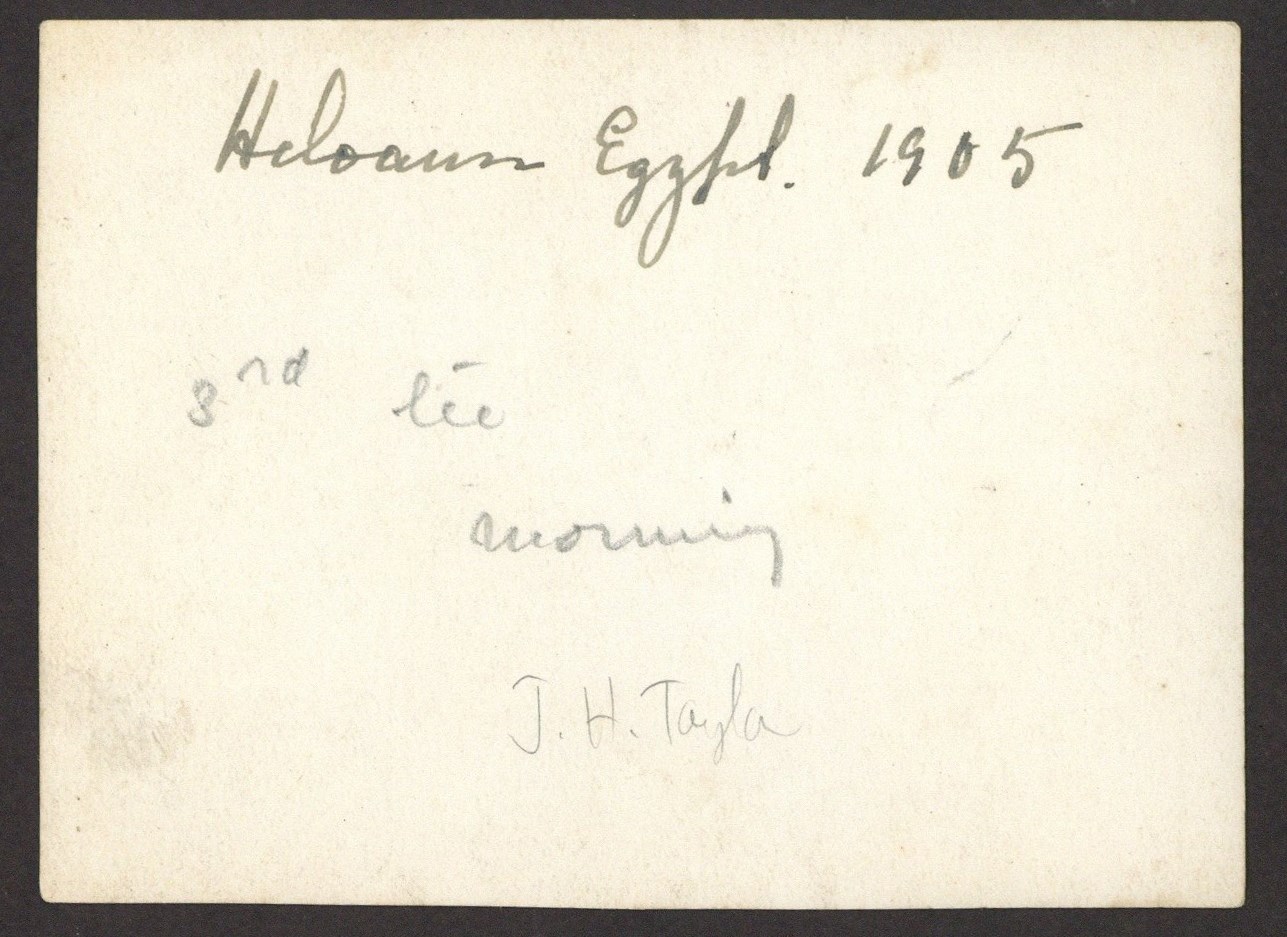 Heloaun Egypt. 1905
3rd tee
morning
J. H. Taylor